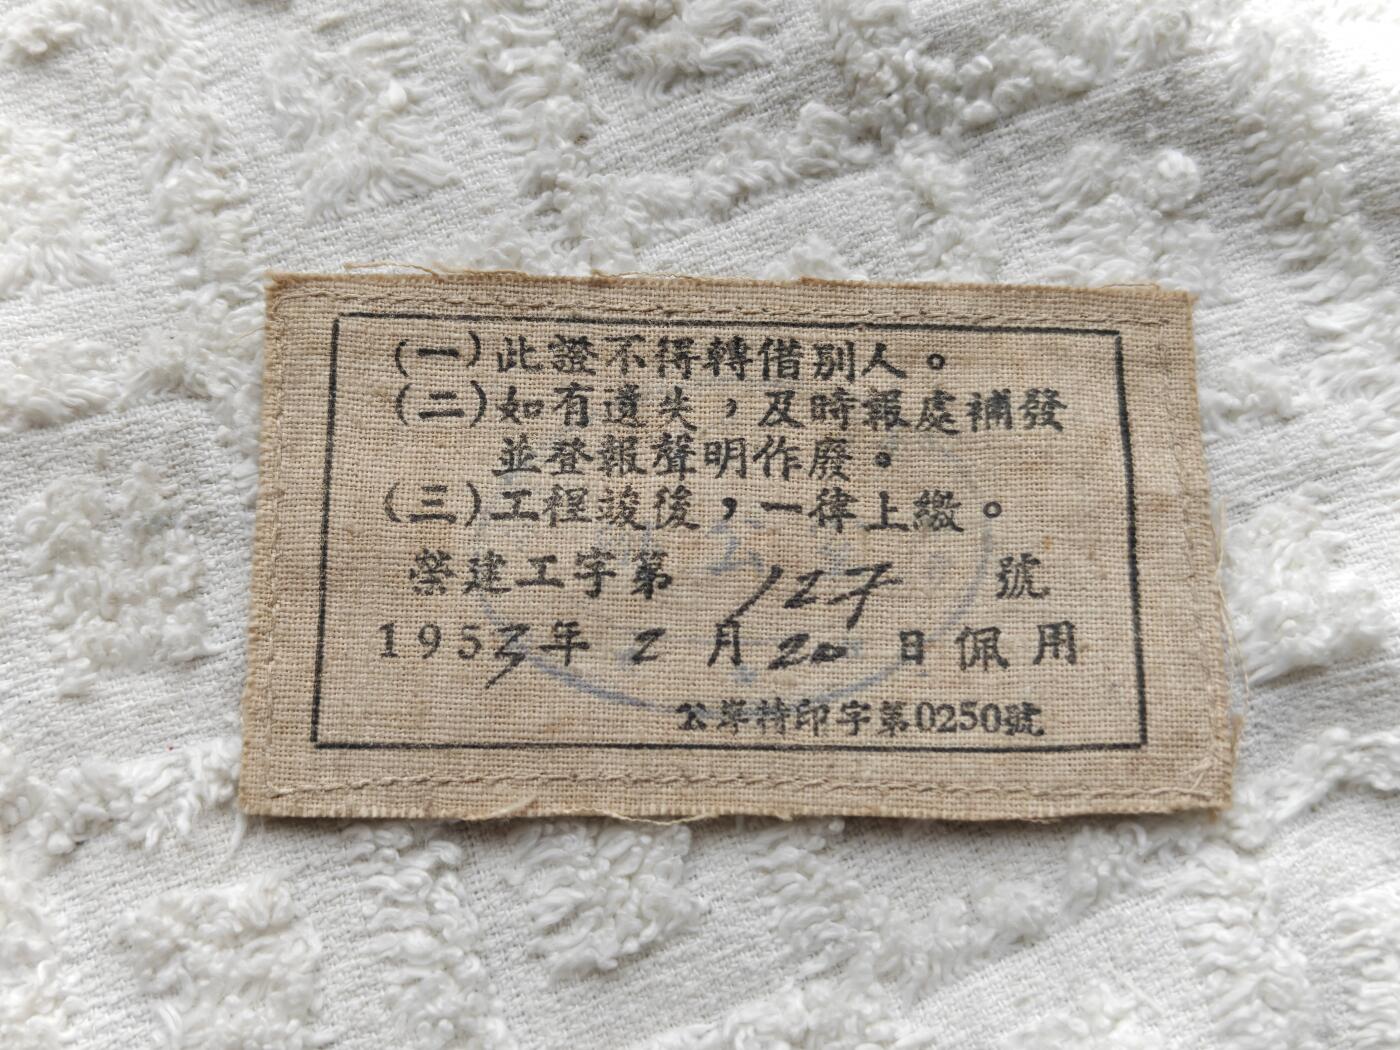 (一)此證不得轉借別人。
(二)如有遺失，及時報處補發
並登報聲明作廢。
(三)工程竣後，一律上繳。
榮建工字第 127 號
1953年 2 月 20 日佩用
公峯特印字第0250號